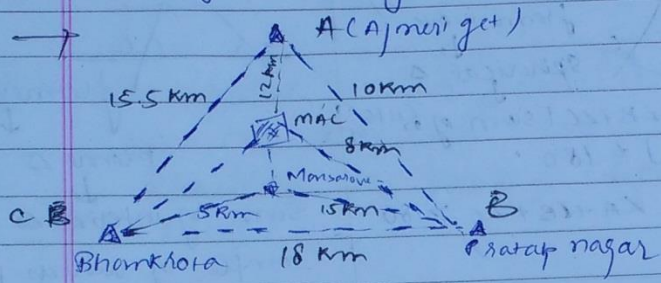 A (Ajmeri get)
12km
15.5 Km
10km
MAC
8km
Mansarovar
C B
5km
15km
B
Bhamkrota
18 Km
Pratap nagar